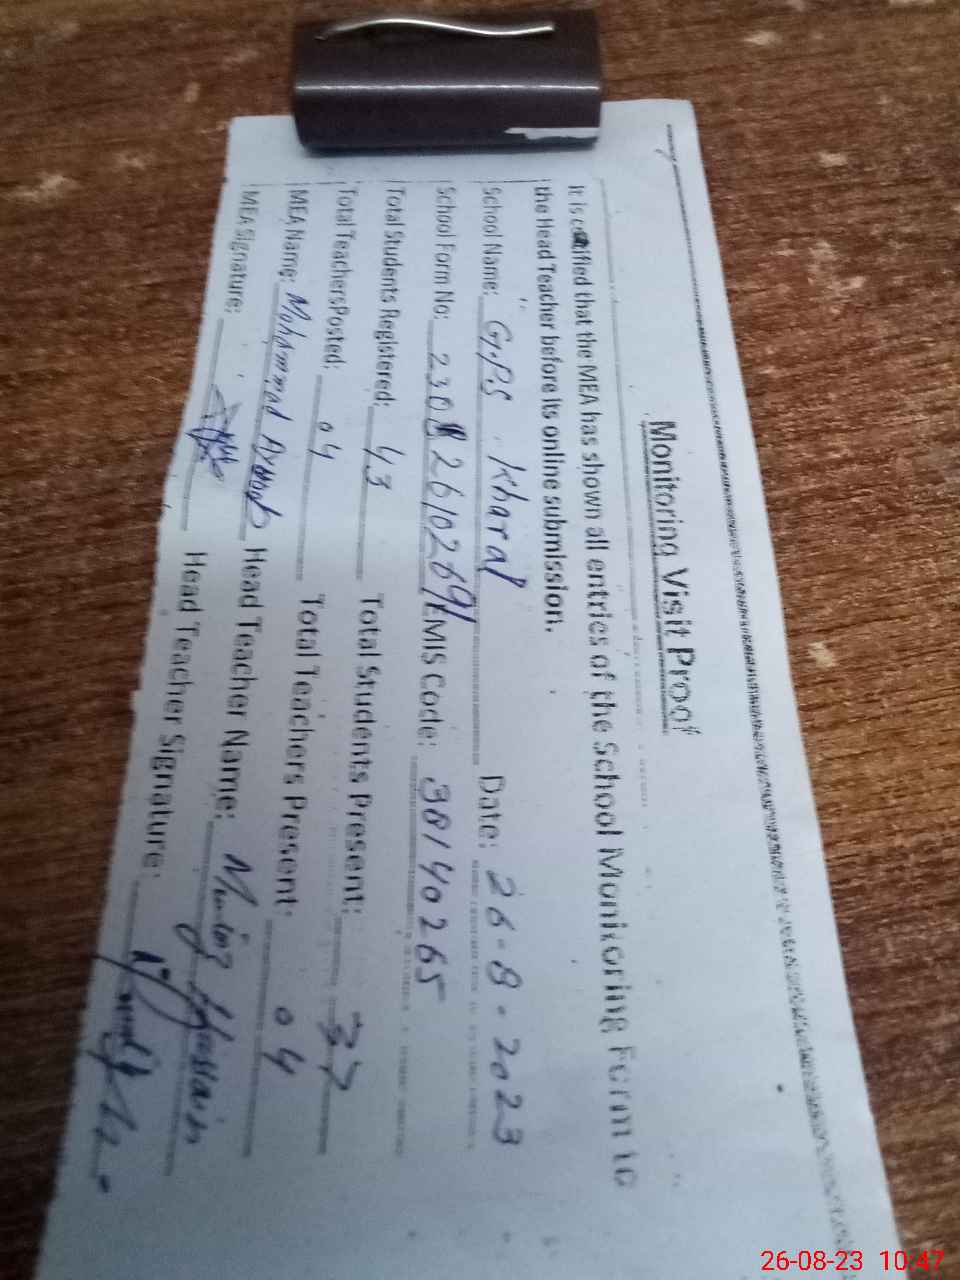 Monitoring Visit Proof
It is certified that the MEA has shown all entries of the School Monitoring Form to
the Head Teacher before its online submission.
School Name: G.P.S Kharal Date: 26-8-2023
School Form No: 2308 2610269 EMIS Code: 38140265
Total Students Registered: 43 Total Students Present: 37
Total Teachers Posted: 04 Total Teachers Present: 04
MEA Name: Mohammad Head Teacher Name: Hussain
MEA Signature: Head Teacher Signature:
26-08-23 10:47